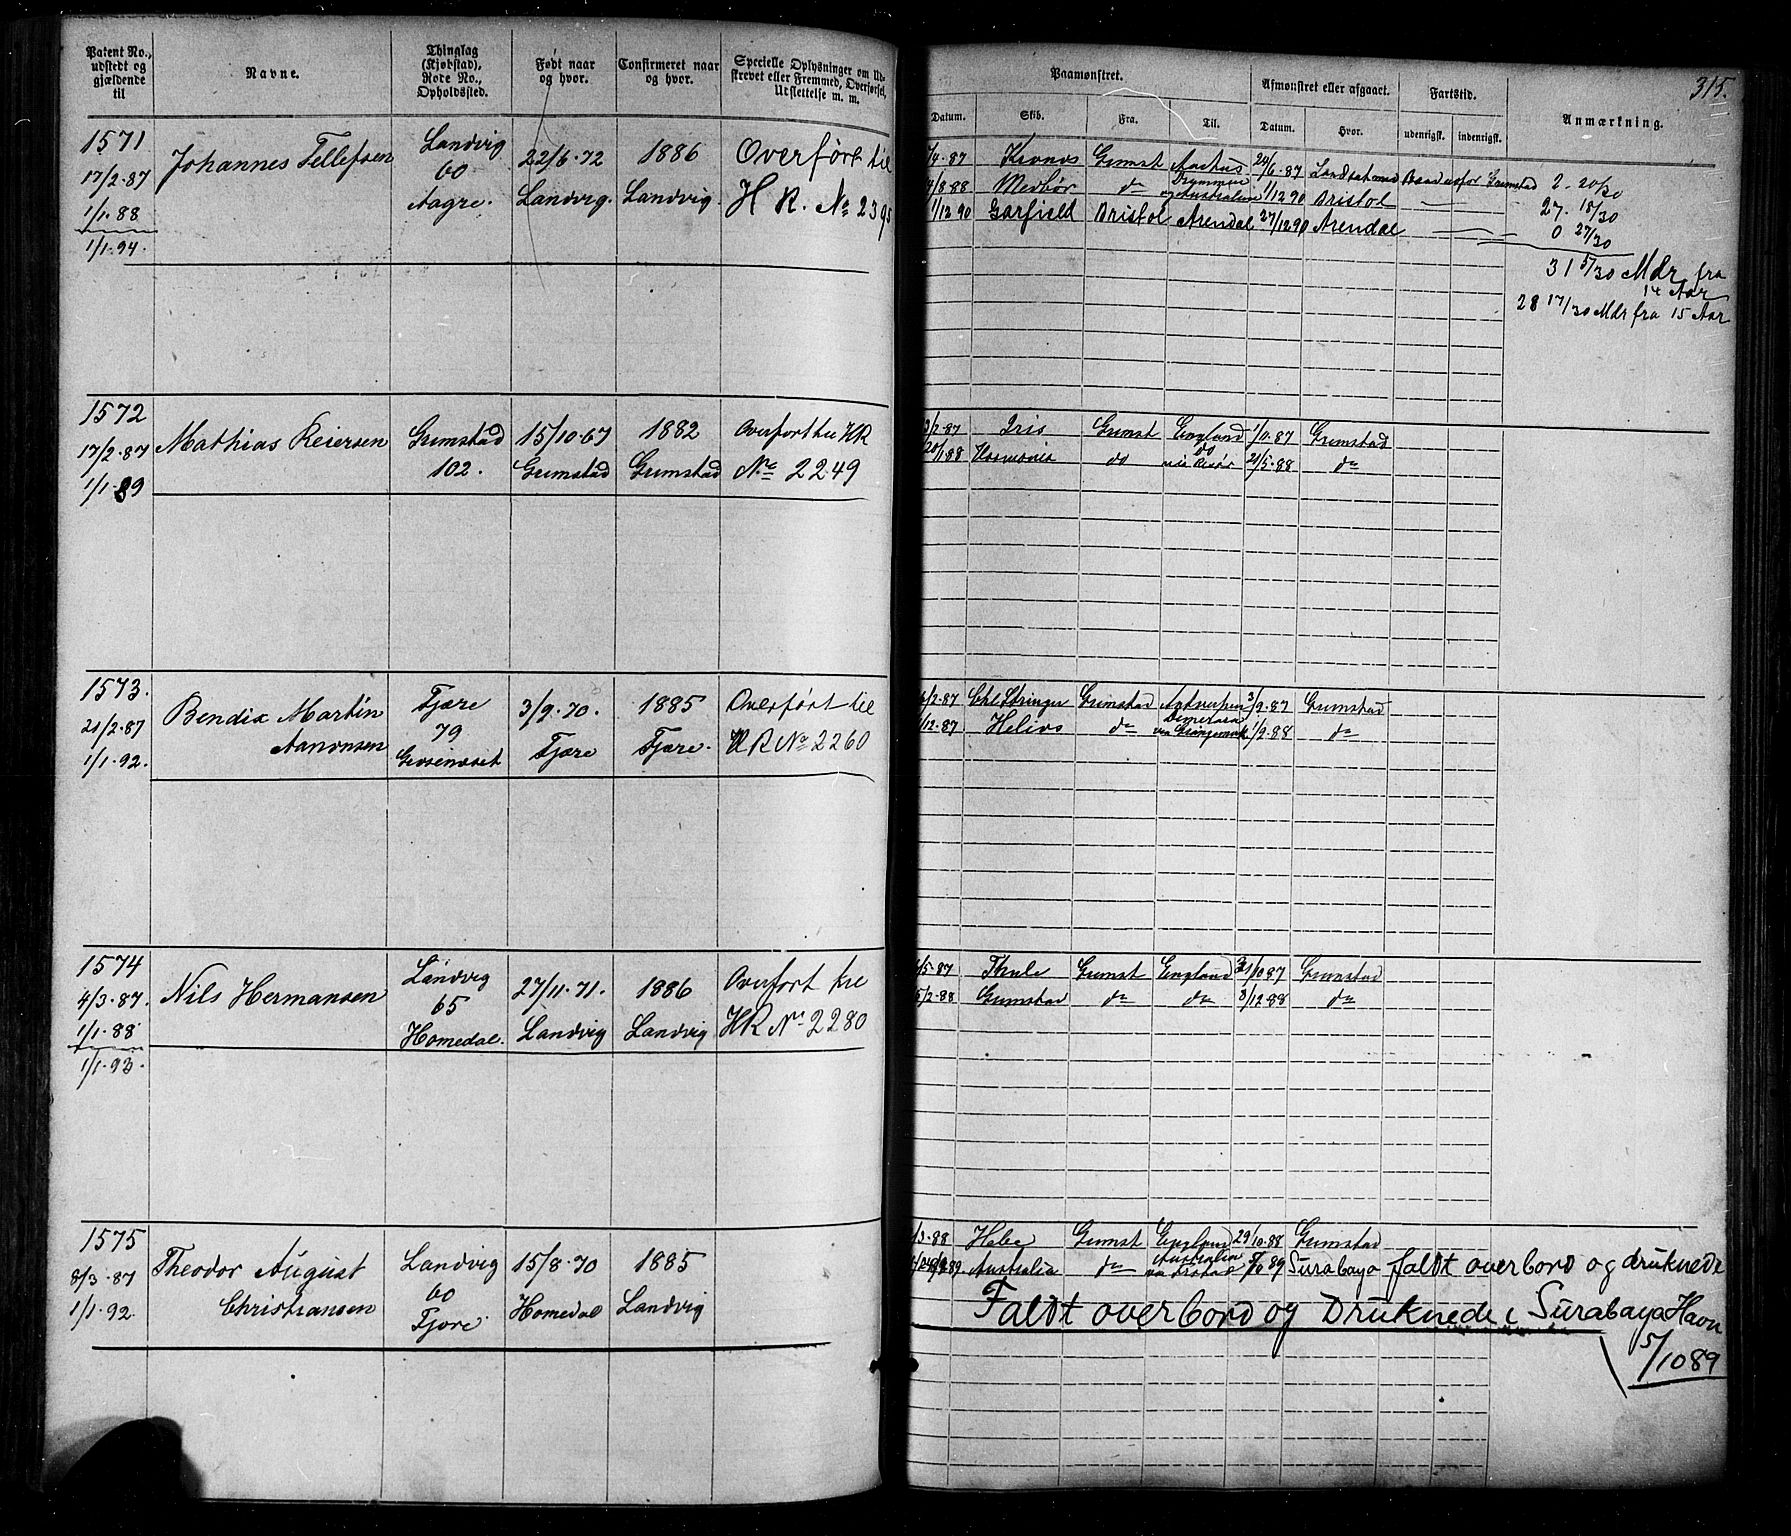 315.
Patent No., udstedt og gjældende til
Navne.
Thinglag (Kjøbstad), Rode No., Opholdssted.
Født naar og hvor.
Confirmeret naar og hvor.
Specielle Oplysninger om Udstrevet eller Fremmed, Overførsel, Udslettelse m. m.
Paamønstret.
Afmønstret eller afgaaet.
Fartstid.
Anmærkning.
Datum. Skib. Fra. Til. Datum. Hvor. udenrigsk. indenrigsk.
1571
17/2·87
1/1·88
1/1·94.
Johannes Tellefsen
Landvig
60
Aagre.
22/6·72
Landvig.
1886
Landvig.
Overført til
H R. No 2395
/4·87 Kronos Grimst Aarhus 24/6·87
/8·88 Medbør do 1/12 90 Bristol
1/12 90 Garfield Bristol Arendal 27/12 90 Arendal
2 20/30
27 18/30
0 27/30
31 5/30 Mdr fra
14 Aar
28 17/30 Mdr fra 15 Aar
1572
17/2·87
1/1·89
Mathias Reiersen
Grimstad
102.
15/10·67
Grimstad
1882
Grimstad
Overført til HR
No 2249
/2·87 Iris Grimst England 1/11·87 Grimstad
20/1 88 Harmonia do do 21/5·88 do
via Risør
1573.
21/2·87
1/1·92.
Bendix Martin
Aanonsen
Fjære
79
3/9·70.
Fjære
1885
Fjære.
Overført til
HR No 2260
/2·87 Chl Stringer Grimstad Antwerpen 3/9·87 Grimstad
/12·87 Helios do Demerara 1/9·88 do
1574
4/3·87.
1/1·88
1/1·93.
Nils Hermansen
Landvig
65
Homedal.
27/11·71.
Landvig
1886
Landvig
Overført til
HR No 2280
/5·87 Thule Grimst England 31/10 87 Grimstad
5/2·88 Grimstad do do 3/12 88 do
1575
8/3·87
1/1·92.
Theodor August
Christiansen
Landvig
60
Fjære.
15/8·70
Homedal
1885
Landvig
/3·88 Hebe Grimst England 29/10·88 Grimstad
Australia do Australia 5/10 89 Surabaya faldt overbord og druknede
Faldt overbord og Druknede i Surabaya Havn
5/10 89